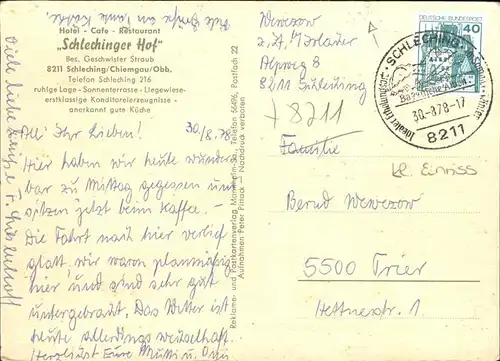 Hotel - Cafe - Restaurant
"Schlechinger Hof"
Bes. Geschwister Straub
8211 Schleching/Chiemgau/Obb.
Telefon Schleching 216
ruhige Lage - Sonnenterrasse - Liegewiese-
erstklassige Konditoreierzeugnisse -
anerkannt gute Küche
30/8.78
All' Ihr Lieben!
Hier haben wir heute wunder
bar zu Mittag gegessen und
sitzen jetzt beim Kaffee. -
Die Fahrt nach hier verlief
glatt, wir waren planmäßig
hier und sind sehr gut
untergebracht. Das Wetter ist
heute allerdings wechselhaft.
Herzlichst Eure Mutti u. Omi
Viele Grüße an
Viele liebe Grüße
Reklame- und Postkartenverlag Mannheim-34, Telefon 55496, Postfach 22
Aufnahmen Peter Pittack - Nachdruck verboten
DEUTSCHE BUNDESPOST
40
SCHLECHING
30.-8.78-17
8211
Wewezow
Alpweg 8
8211 Schleching
+8211
Familie
kl. Einriss
Bernd Wewezow
5500 Trier
Hettnerstr. 1